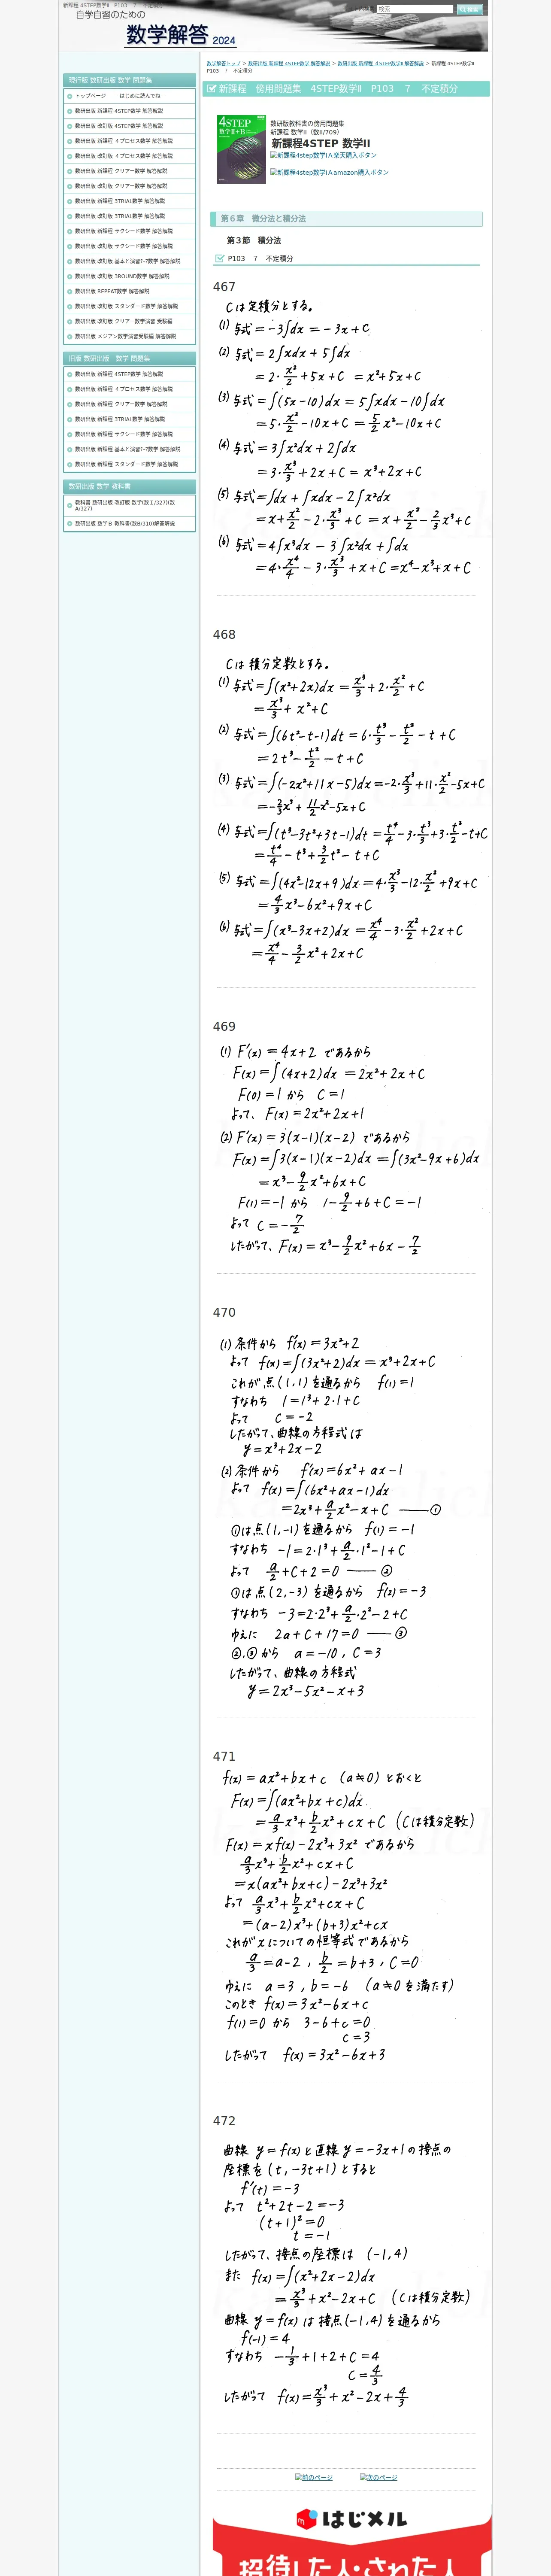 新課程 4STEP数学Ⅱ P103 7 不定積分
自学自習のための
数学解答 2024
検索
数学解答トップ > 数研出版 新課程 4STEP数学 解答解説 > 数研出版 新課程 4STEP数学Ⅱ 解答解説 > 新課程 4STEP数学Ⅱ
P103 7 不定積分
現行版 数研出版 数学 問題集
トップページ － はじめに読んでね －
数研出版 新課程 4STEP数学 解答解説
数研出版 改訂版 4STEP数学 解答解説
数研出版 新課程 4プロセス数学 解答解説
数研出版 改訂版 4プロセス数学 解答解説
数研出版 新課程 クリアー数学 解答解説
数研出版 改訂版 クリアー数学 解答解説
数研出版 新課程 3TRIAL数学 解答解説
数研出版 改訂版 3TRIAL数学 解答解説
数研出版 新課程 サクシード数学 解答解説
数研出版 改訂版 サクシード数学 解答解説
数研出版 改訂版 基本と演習ﾃｰﾏ数学 解答解説
数研出版 改訂版 3ROUND数学 解答解説
数研出版 REPEAT数学 解答解説
数研出版 改訂版 スタンダード数学 解答解説
数研出版 改訂版 クリアー数学演習 受験編
数研出版 メジアン数学演習受験編 解答解説
旧版 数研出版 数学 問題集
数研出版 新課程 4STEP数学 解答解説
数研出版 新課程 4プロセス数学 解答解説
数研出版 新課程 クリアー数学 解答解説
数研出版 新課程 3TRIAL数学 解答解説
数研出版 新課程 サクシード数学 解答解説
数研出版 新課程 基本と演習ﾃｰﾏ数学 解答解説
数研出版 新課程 スタンダード数学 解答解説
数研出版 数学 教科書
教科書 数研出版 改訂版 数学(数Ⅰ/327)(数
A/327)
数研出版 数学Ｂ 教科書(数B/310)解答解説
新課程 傍用問題集 4STEP数学Ⅱ P103 7 不定積分
4STEP
数学Ⅱ+B
数研版教科書の傍用問題集
新課程 数学Ⅱ（数Ⅱ/709）
新課程4STEP 数学Ⅱ
新課程4step数学ⅠA楽天購入ボタン
新課程4step数学ⅠAamazon購入ボタン
第６章 微分法と積分法
第３節 積分法
P103 7 不定積分
467
Cは定積分とする。
(1) 与式=-3∫dx=-3x+C
(2) 与式=2∫xdx+5∫dx
=2・x²/2+5x+C =x²+5x+C
(3) 与式=∫(5x-10)dx=5∫xdx-10∫dx
=5・x²/2-10x+C=5/2x²-10x+C
(4) 与式=3∫x²dx+2∫dx
=3・x³/3+2x+C=x³+2x+C
(5) 与式=∫dx+∫xdx-2∫x²dx
=x+x²/2-2・x³/3+C =x+x²/2-2/3x³+C
(6) 与式=4∫x³dx-3∫x²dx+∫dx
=4・x⁴/4-3・x³/3+x+C=x⁴-x³+x+C
468
Cは積分定数とする。
(1) 与式=∫(x²+2x)dx=x³/3+2・x²/2+C
=x³/3+x²+C
(2) 与式=∫(6t²-t-1)dt=6・t³/3-t²/2-t+C
=2t³-t²/2-t+C
(3) 与式=∫(-2x²+11x-5)dx=-2・x³/3+11・x²/2-5x+C
=-2/3x³+11/2x²-5x+C
(4) 与式=∫(t³-3t²+3t-1)dt=t⁴/4-3・t³/3+3・t²/2-t+C
=t⁴/4-t³+3/2t²-t+C
(5) 与式=∫(4x²-12x+9)dx=4・x³/3-12・x²/2+9x+C
=4/3x³-6x²+9x+C
(6) 与式=∫(x³-3x+2)dx=x⁴/4-3・x²/2+2x+C
=x⁴/4-3/2x²+2x+C
469
(1) F'(x)=4x+2 であるから
F(x)=∫(4x+2)dx=2x²+2x+C
F(0)=1 から C=1
よって、F(x)=2x²+2x+1
(2) F'(x)=3(x-1)(x-2) であるから
F(x)=∫3(x-1)(x-2)dx=∫(3x²-9x+6)dx
=x³-9/2x²+6x+C
F(1)=-1 から 1-9/2+6+C=-1
よって C=-7/2
したがって、F(x)=x³-9/2x²+6x-7/2
470
(1) 条件から f'(x)=3x²+2
よって f(x)=∫(3x²+2)dx=x³+2x+C
これが点(1,1)を通るから f(1)=1
すなわち 1=1³+2・1+C
よって C=-2
したがって、曲線の方程式は
y=x³+2x-2
(2) 条件から f'(x)=6x²+ax-1
よって f(x)=∫(6x²+ax-1)dx
=2x³+a/2x²-x+C ——①
①は点(1,-1)を通るから f(1)=-1
すなわち -1=2・1³+a/2・1²-1+C
よって a/2+C+2=0 ——②
①は点(2,-3)を通るから f(2)=-3
すなわち -3=2・2³+a/2・2²-2+C
ゆえに 2a+C+17=0 ——③
②,③から a=-10, C=3
したがって、曲線の方程式
y=2x³-5x²-x+3
471
f(x)=ax²+bx+c (a≠0)とおくと
F(x)=∫(ax²+bx+c)dx
=a/3x³+b/2x²+cx+C (Cは積分定数)
F(x)=xf(x)-2x³+3x²であるから
a/3x³+b/2x²+cx+C
=x(ax²+bx+c)-2x³+3x²
よって a/3x³+b/2x²+cx+C
=(a-2)x³+(b+3)x²+cx
これがxについての恒等式であるから
a/3=a-2, b/2=b+3, C=0
ゆえに a=3, b=-6 (a≠0を満たす)
このとき f(x)=3x²-6x+c
f(1)=0 から 3-6+c=0
c=3
したがって f(x)=3x²-6x+3
472
曲線 y=f(x)と直線y=-3x+1の接点の
座標を(t, -3t+1)とすると
f'(t)=-3
よって t²+2t-2=-3
(t+1)²=0
t=-1
したがって、接点の座標は (-1,4)
また f(x)=∫(x²+2x-2)dx
=x³/3+x²-2x+C (Cは積分定数)
曲線 y=f(x)は接点(-1,4)を通るから
f(-1)=4
すなわち -1/3+1+2+C=4
C=4/3
したがって f(x)=x³/3+x²-2x+4/3
前のページ 次のページ
はじメル
招待した人・された人